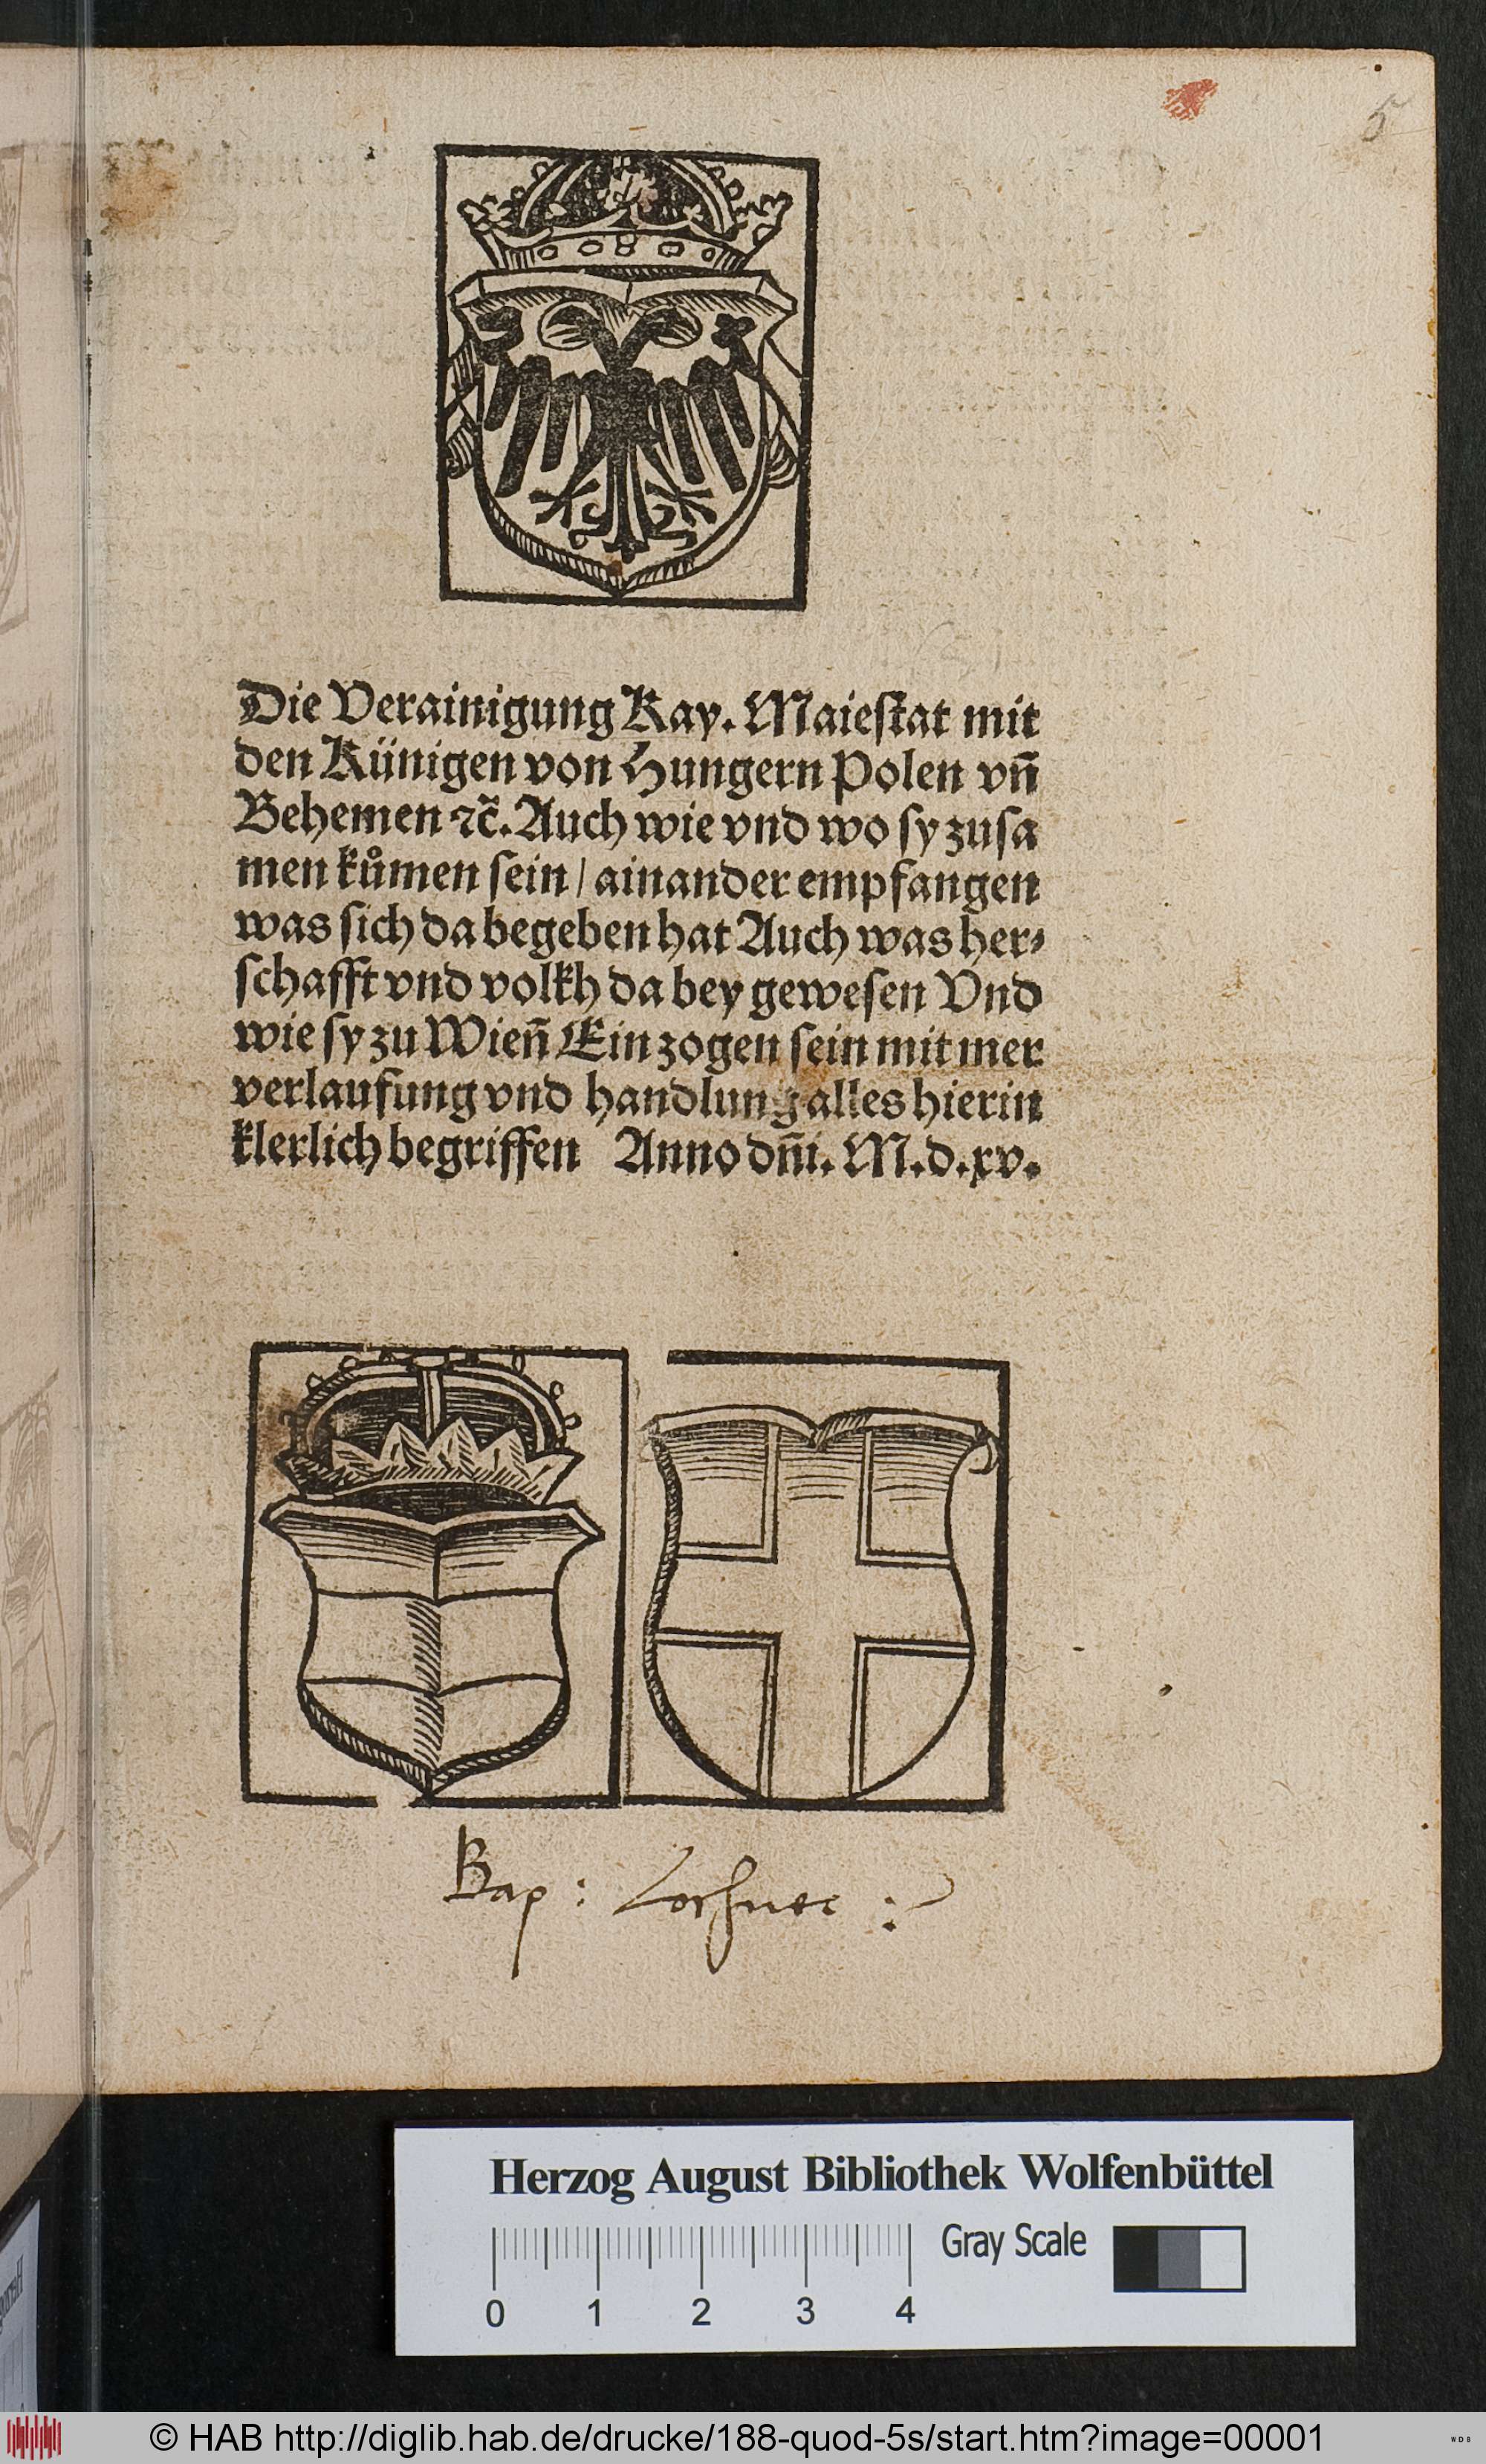 5
Die Verainigung Kay. Maiestat mit
den Künigen von Hungern Polen vñ
Behemen ⁊c̃. Auch wie vnd wo sy zusa
men kůmen sein / ainander empfangen
was sich da begeben hat Auch was her⸗
schafft vnd volkh da bey gewesen Vnd
wie sy zu Wieñ Ein zogen sein mit mer
verlaufung vnd handlung alles hierin
klerlich begriffen Anno dñi. M.d.xv.
Bap :
Herzog August Bibliothek Wolfenbüttel
Gray Scale
0 1 2 3 4
© HAB http://diglib.hab.de/drucke/188-quod-5s/start.htm?image=00001
WDB